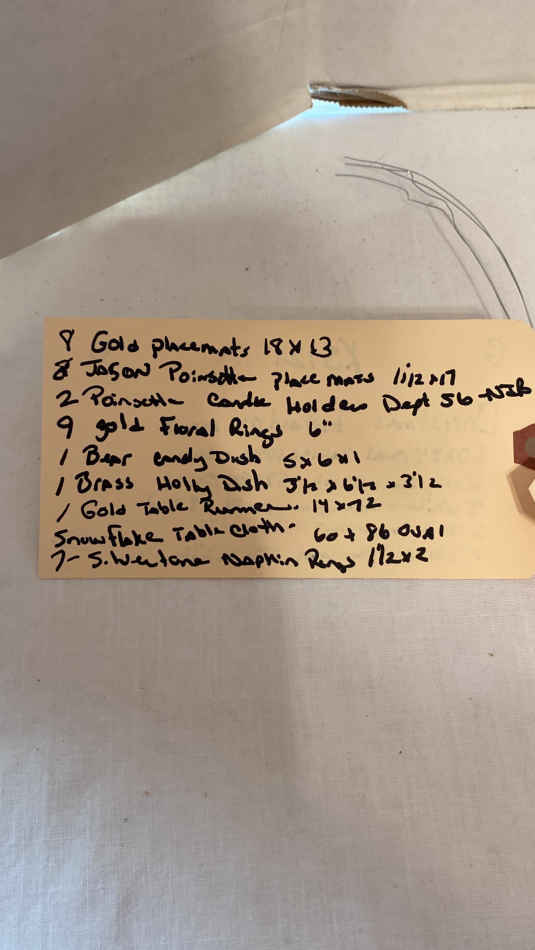 8 Gold placemats 18 x 13
8 JASON Poinsettia placemats 11 1/2 x 17
2 Poinsettia Candle Holders Dept 56 - NIB
9 gold Floral Rings 6"
1 Bear candy Dish 5 x 6 x 1
1 Brass Holly Dish 3 1/2 x 6 1/2 x 3 1/2
1 Gold Table Runner. 14 x 72
Snowflake Table Cloth. 60 x 86 OVAl
7- Silvertone Napkin Rings 1 1/2 x 2